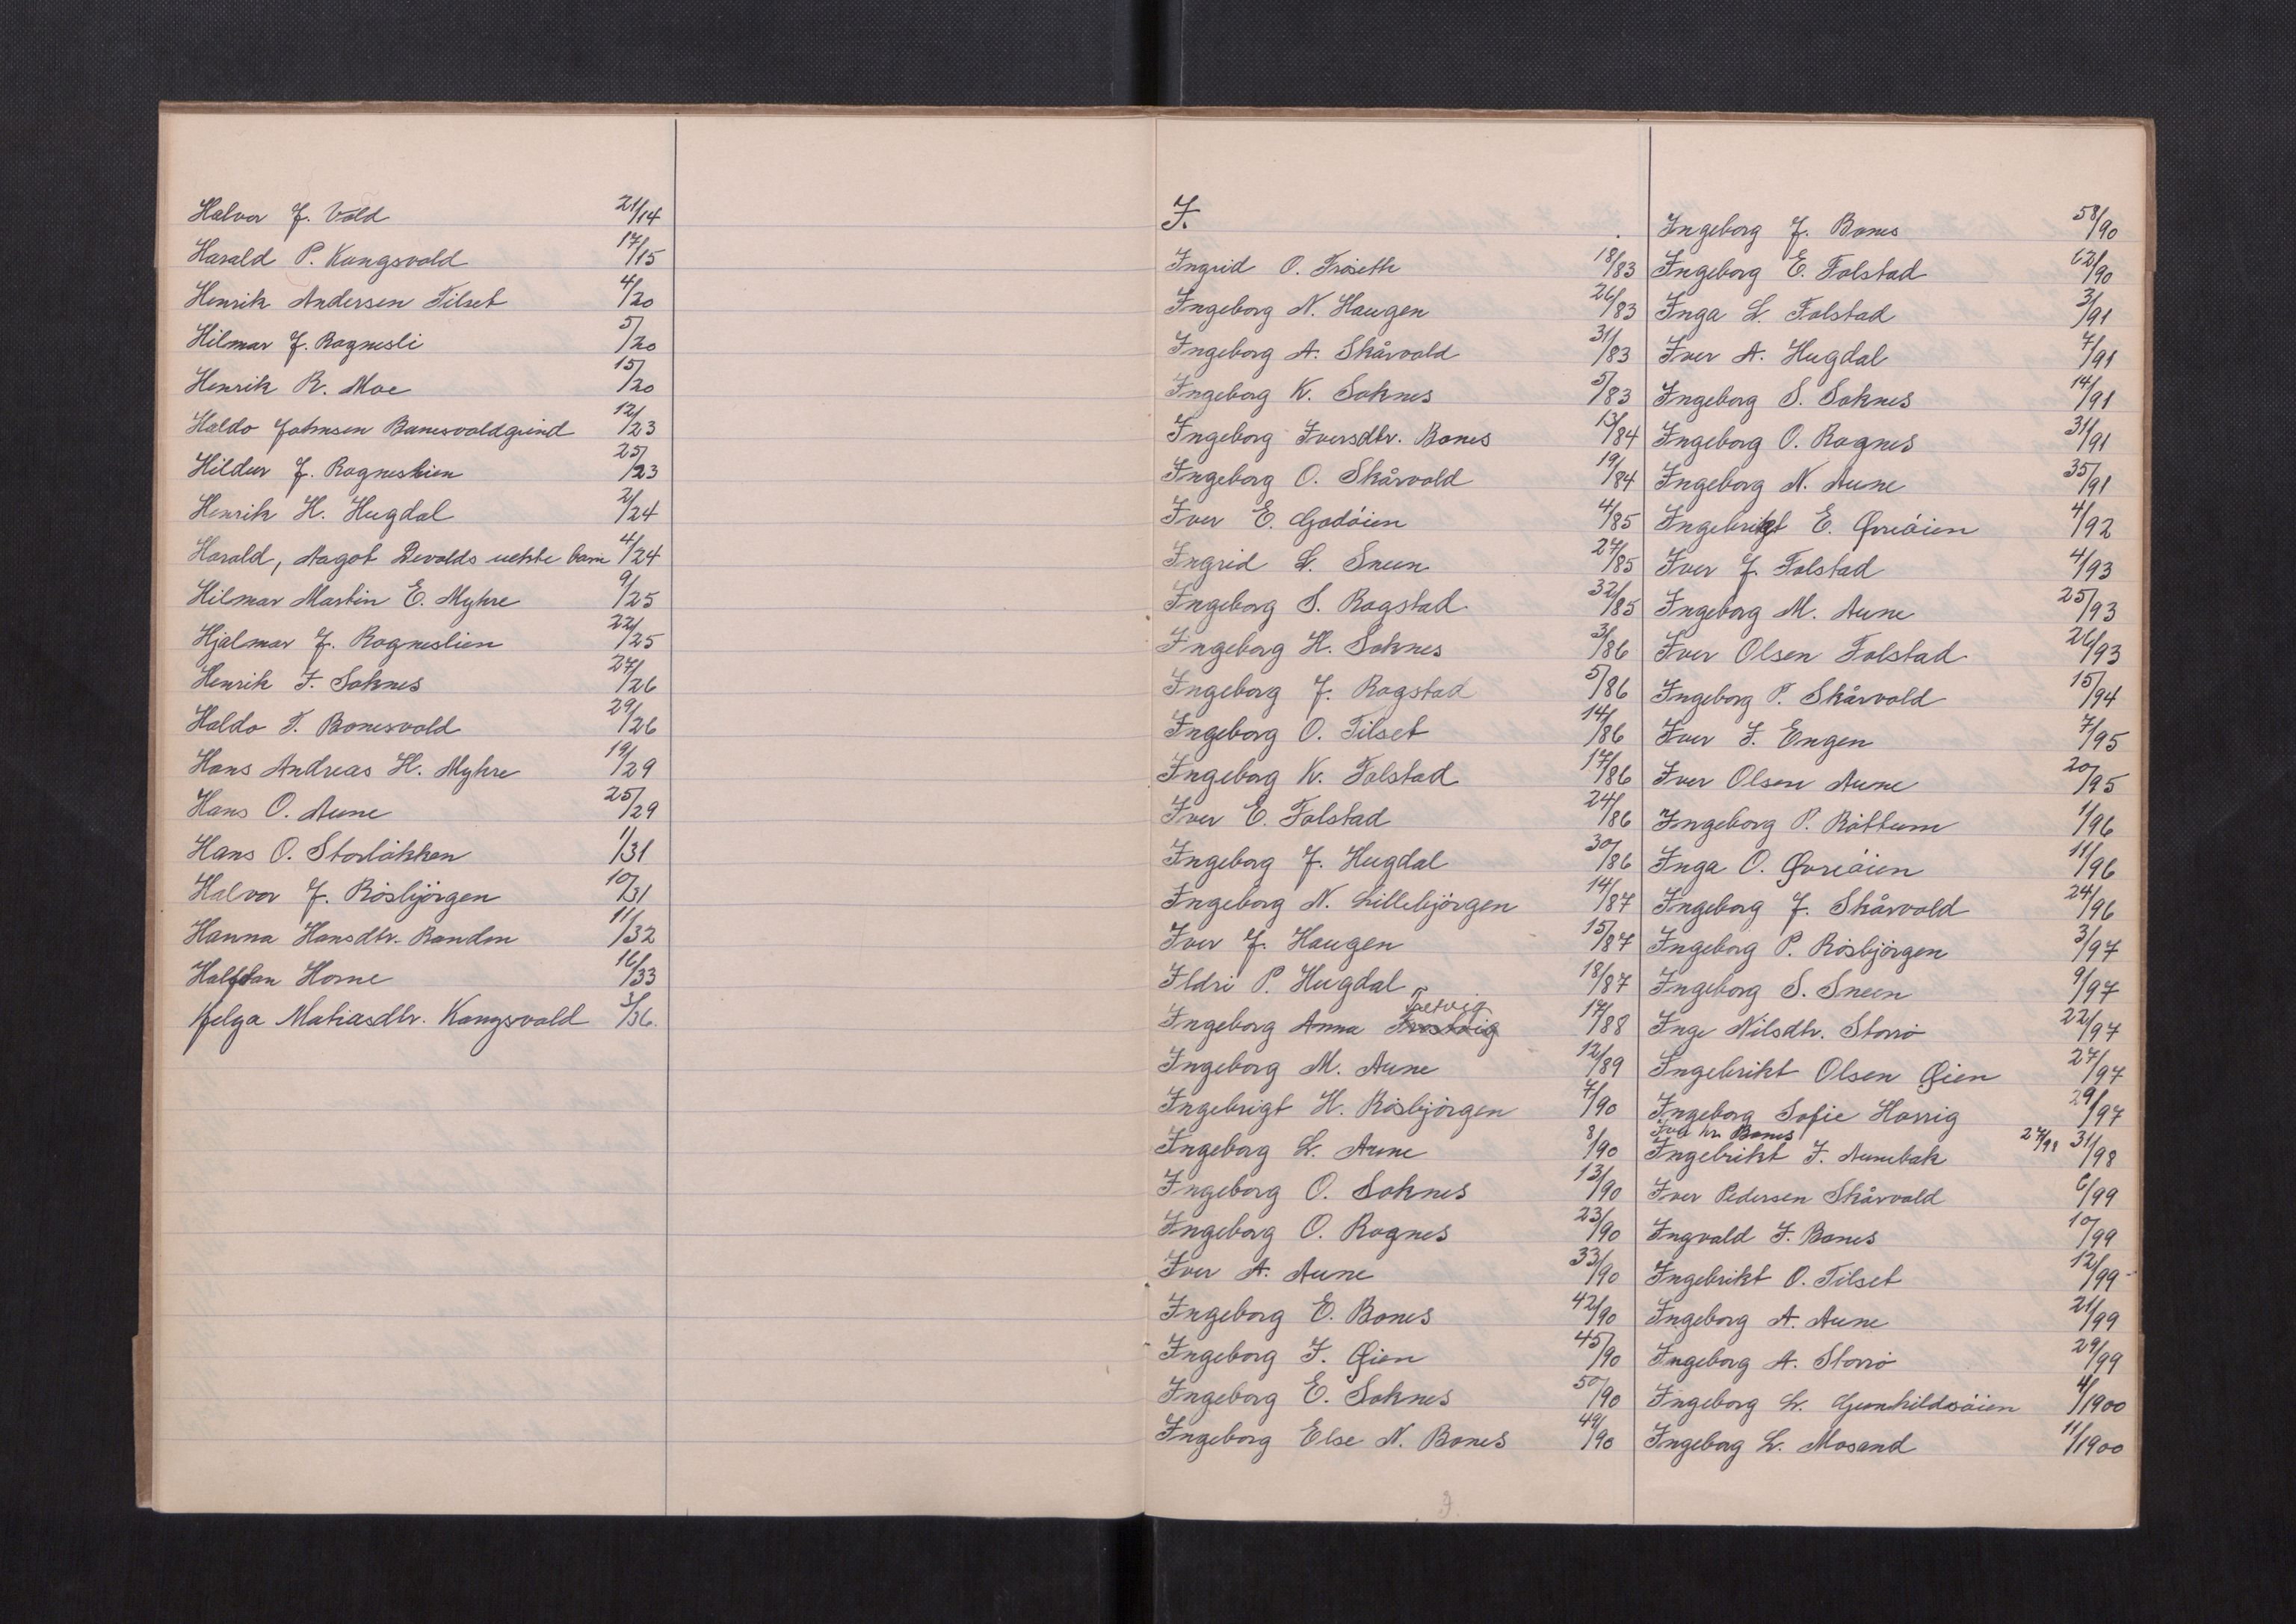 Halvor J. Vold 21/14
Harald P. Kongsvold 17/15
Henrik Andersen Tilset 4/20
Hilmar J. Rognesli 5/20
Henrik R. Moe 15/20
Haldo Johnsen Bonesvoldgrind 12/23
Hildur J. Rogneslien 25/23
Henrik H. Hugdal 2/24
Harald, Aagot Devolds uekte barn 4/24
Hilmar Martin E. Myhre 9/25
Hjalmar J. Rogneslien 22/25
Henrik I. Soknes 27/26
Haldo T. Bonesvold 29/26
Hans Andreas H. Myhre 19/29
Hans O. Aune 25/29
Hans O. Storløkken 1/31
Halvor J. Rösbjörgen 10/31
Hanna Hansdtr. Bandm 11/32
Halfdan Horne 16/33
Helga Matiasdtr. Kongsvold 3/36.
I.
Ingrid O. Fröseth 18/83
Ingeborg N. Haugen 26/83
Ingeborg A. Skårvold 31/83
Ingeborg K. Soknes 5/83
Ingeborg Iversdtr. Bones 13/84
Ingeborg O. Skårvold 19/84
Iver E. Godöien 4/85
Ingrid L. Sneen 27/85
Ingeborg S. Rogstad 32/85
Ingeborg H. Soknes 3/86
Ingeborg J. Rogstad 5/86
Ingeborg O. Tilset 14/86
Ingeborg K. Folstad 17/86
Iver E. Folstad 24/86
Ingeborg J. Hugdal 30/86
Ingeborg N. Lillebjörgen 14/87
Iver J. Haugen 15/87
Ildri P. Hugdal 18/87
Ingeborg Anna 17/88
Ingeborg M. Aune 12/89
Ingebrigt H. Rösbjörgen 7/90
Ingeborg L. Aune 8/90
Ingeborg O. Soknes 13/90
Ingeborg O. Rognes 23/90
Iver A. Aune 33/90
Ingeborg E. Bones 42/90
Ingeborg I. Øien 45/90
Ingeborg E. Soknes 50/90
Ingeborg Else N. Bones 49/90
Ingeborg J. Bones 58/90
Ingeborg E. Folstad 62/90
Inga L. Folstad 3/91
Iver A. Hugdal 7/91
Ingeborg S. Soknes 14/91
Ingeborg O. Rognes 31/91
Ingeborg N. Aune 35/91
Ingebrigt E. Øvreöien 4/92
Iver J. Folstad 4/93
Ingeborg M. Aune 25/93
Iver Olsen Folstad 26/93
Ingeborg P. Skårvold 15/94
Iver I. Engen 7/95
Iver Olsen Aune 20/95
Ingeborg P. Röttum 1/96
Inga O. Øvreöien 11/96
Ingeborg J. Skårvold 24/96
Ingeborg P. Rösbjörgen 3/97
Ingeborg S. Sneen 9/97
Inge Nilsdtr. Storrö 22/97
Ingebrikt Olsen Øien 27/97
Ingeborg Sofie Horrig 29/97
Bones 27/98
Ingebrikt I. Aunebak 31/98
Iver Pedersen Skårvold 6/99
Ingvald I. Bones 10/99
Ingebrikt O. Tilset 12/99
Ingeborg A. Aune 21/99
Ingeborg A. Storrö 29/99
Ingeborg L. Gunhildsöien 4/1900
Ingeborg L. Mosand 11/1900